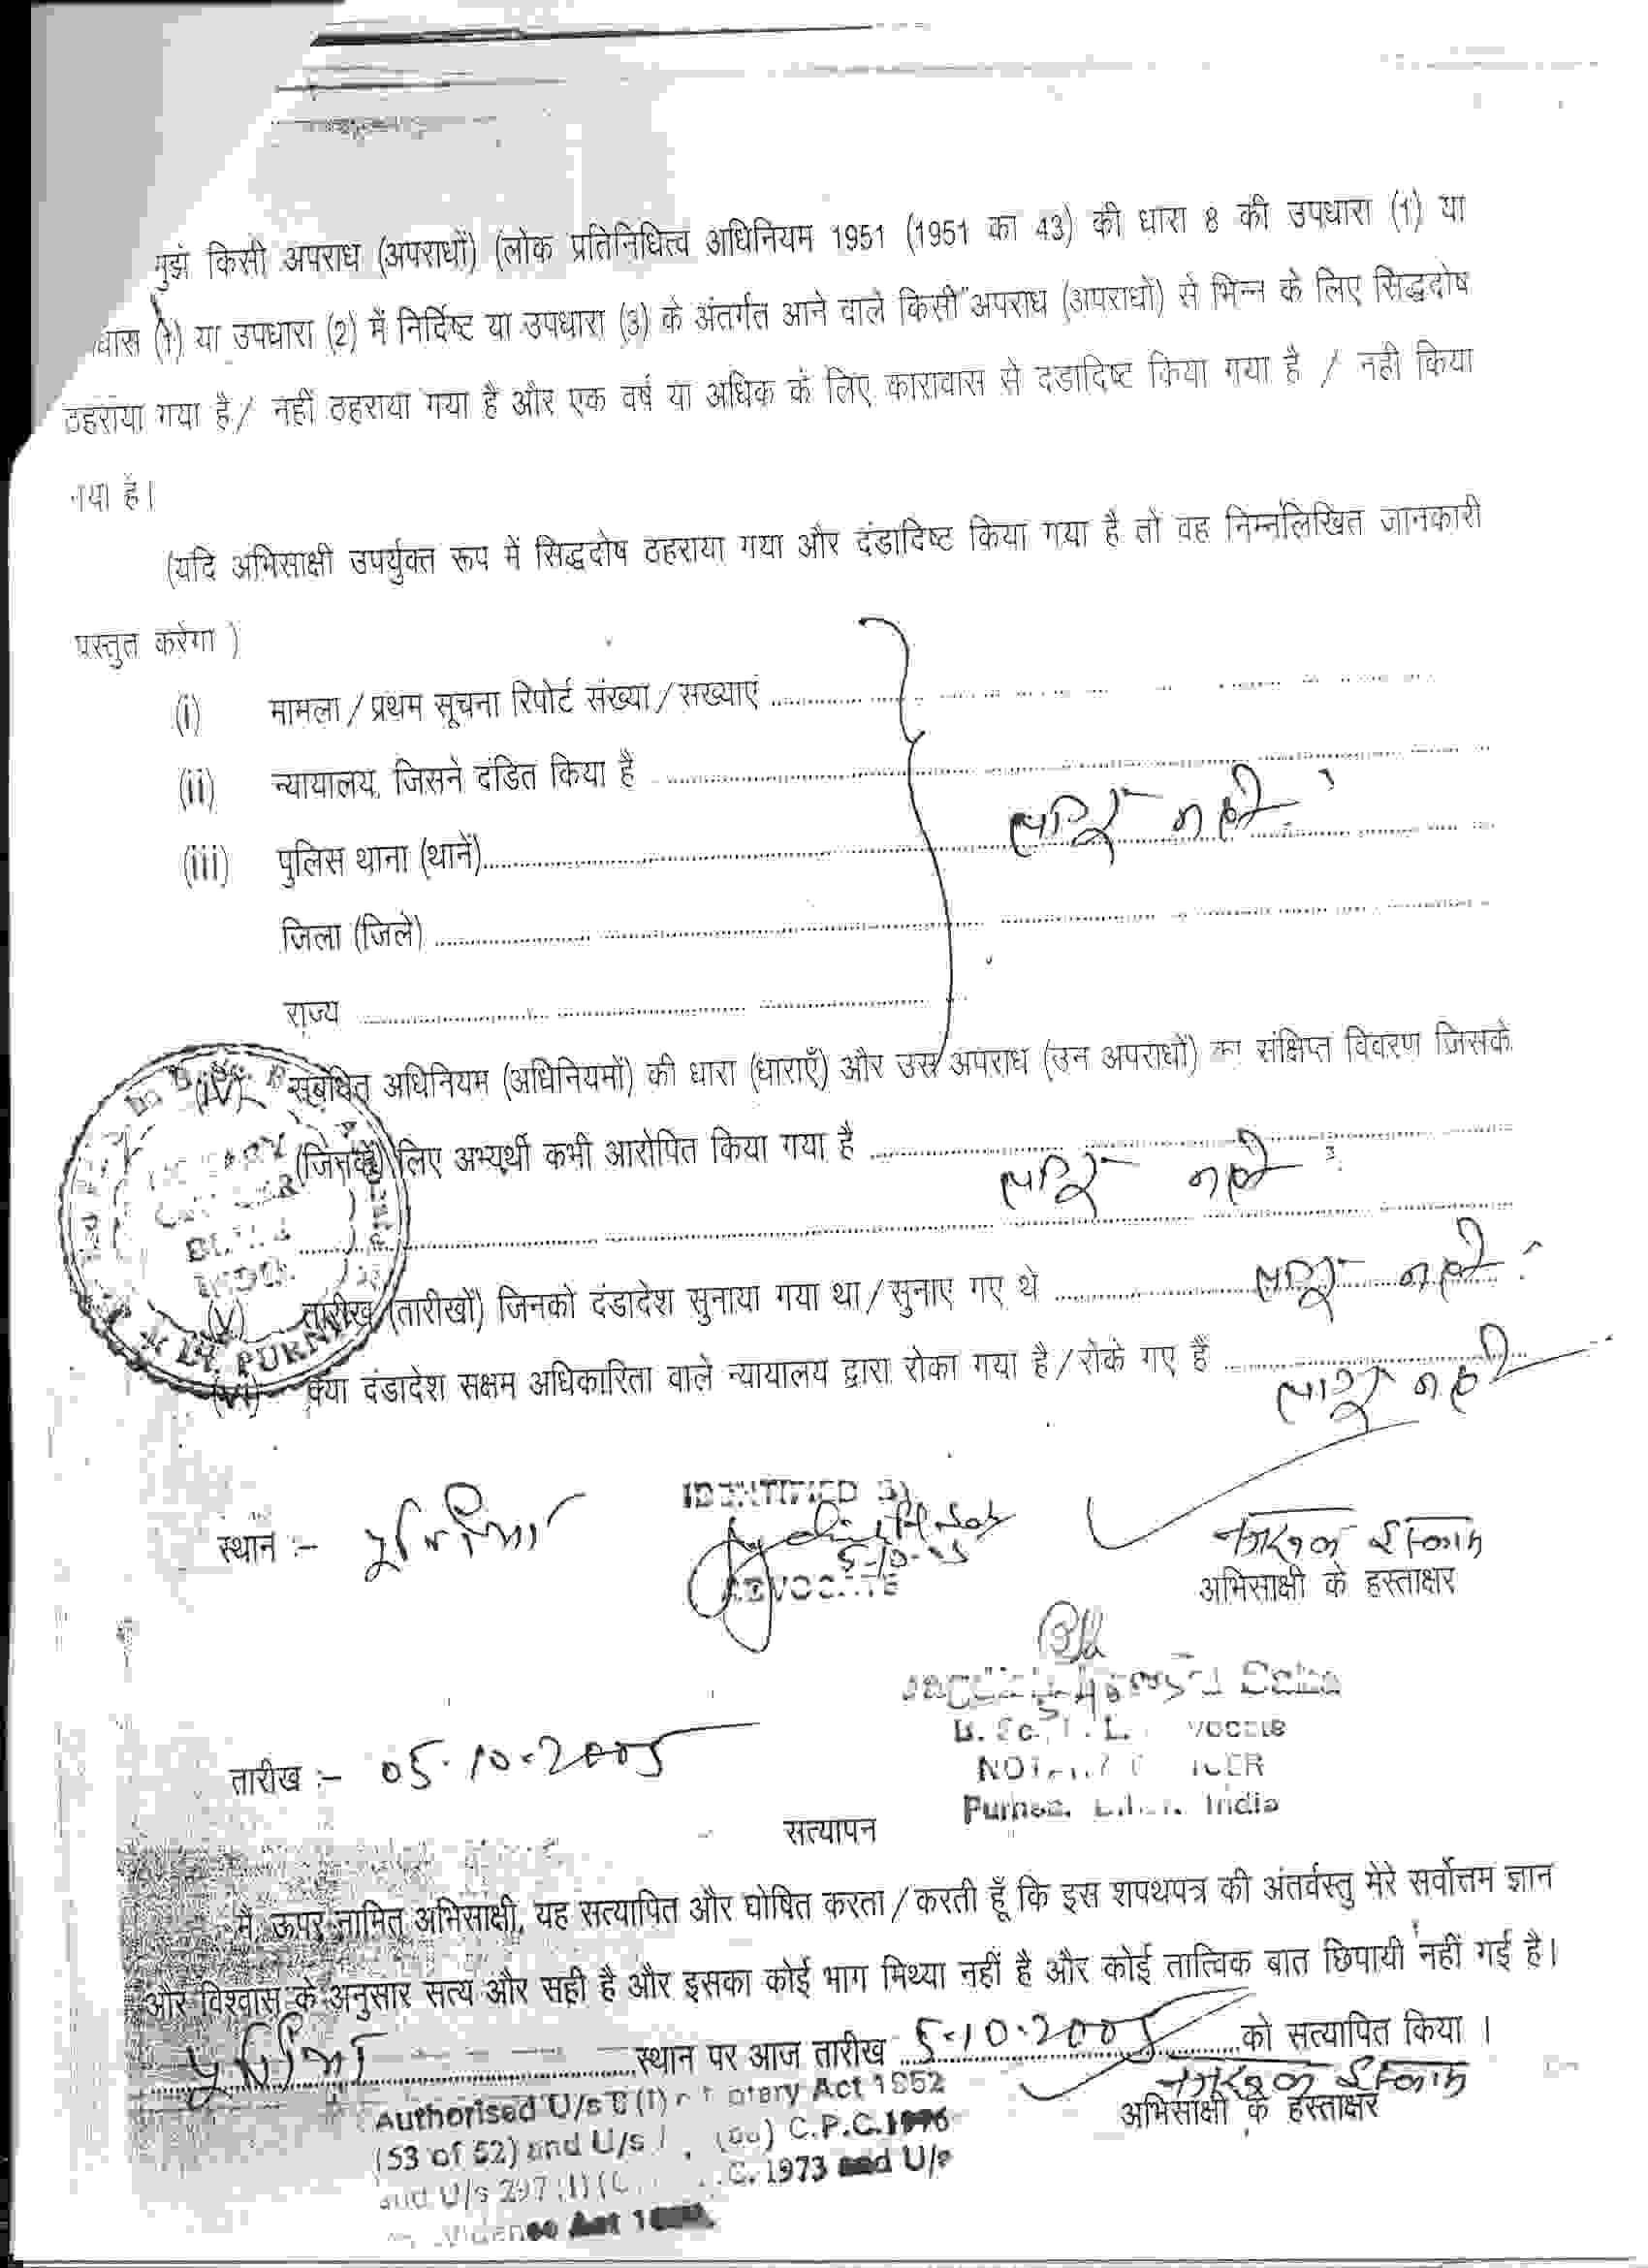 मुझे किसी अपराध (अपराधों) (लोक प्रतिनिधित्व अधिनियम 1951 (1951 का 43) की धारा 8 की उपधारा (1) या
(1) या उपधारा (2) में निर्दिष्ट या उपधारा (3) के अंतर्गत आने वाले किसी अपराध (अपराधों) से भिन्न के लिए सिद्धदोष
ठहराया गया है / नहीं ठहराया गया है और एक वर्ष या अधिक के लिए कारावास से दंडादिष्ट किया गया है / नहीं किया
गया है।
(यदि अभिसाक्षी उपर्युक्त रूप में सिद्धदोष ठहराया गया और दंडादिष्ट किया गया है तो वह निम्नलिखित जानकारी
प्रस्तुत करेगा )
(i) मामला / प्रथम सूचना रिपोर्ट संख्या / संख्याएं
(ii) न्यायालय, जिसने दंडित किया है
नहीं
(iii) पुलिस थाना (थानें)
जिला (जिले)
राज्य
(iv) संबंधित अधिनियम (अधिनियमों) की धारा (धाराएँ) और उस अपराध (उन अपराधों) का संक्षिप्त विवरण जिसके
(जिनके) लिए अभ्यर्थी कभी आरोपित किया गया है
नहीं
(v) तारीख (तारीखों) जिनको दंडादेश सुनाया गया था / सुनाए गए थे नहीं
(vi) क्या दंडादेश सक्षम अधिकारिता वाले न्यायालय द्वारा रोका गया है / रोके गए हैं
नहीं
PURN
IDENTIFIED BY
स्थान :– पूर्णिया
5-10-05
ADVOCATE
अभिसाक्षी के हस्ताक्षर
B. Sc.
NOTARY
तारीख :– 05.10.2005
India
सत्यापन
मैं, ऊपर नामित अभिसाक्षी, यह सत्यापित और घोषित करता / करती हूँ कि इस शपथपत्र की अंतर्वस्तु मेरे सर्वोत्तम ज्ञान
और विश्वास के अनुसार सत्य और सही है और इसका कोई भाग मिथ्या नहीं है और कोई तात्विक बात छिपायी नहीं गई है।
पूर्णिया स्थान पर आज तारीख 5.10.2005 को सत्यापित किया ।
अभिसाक्षी के हस्ताक्षर
Authorised U/s Act 1952
(53 of 52) and U/s C.P.C.
and U/s 297 (1) 1973 and U/s
Act